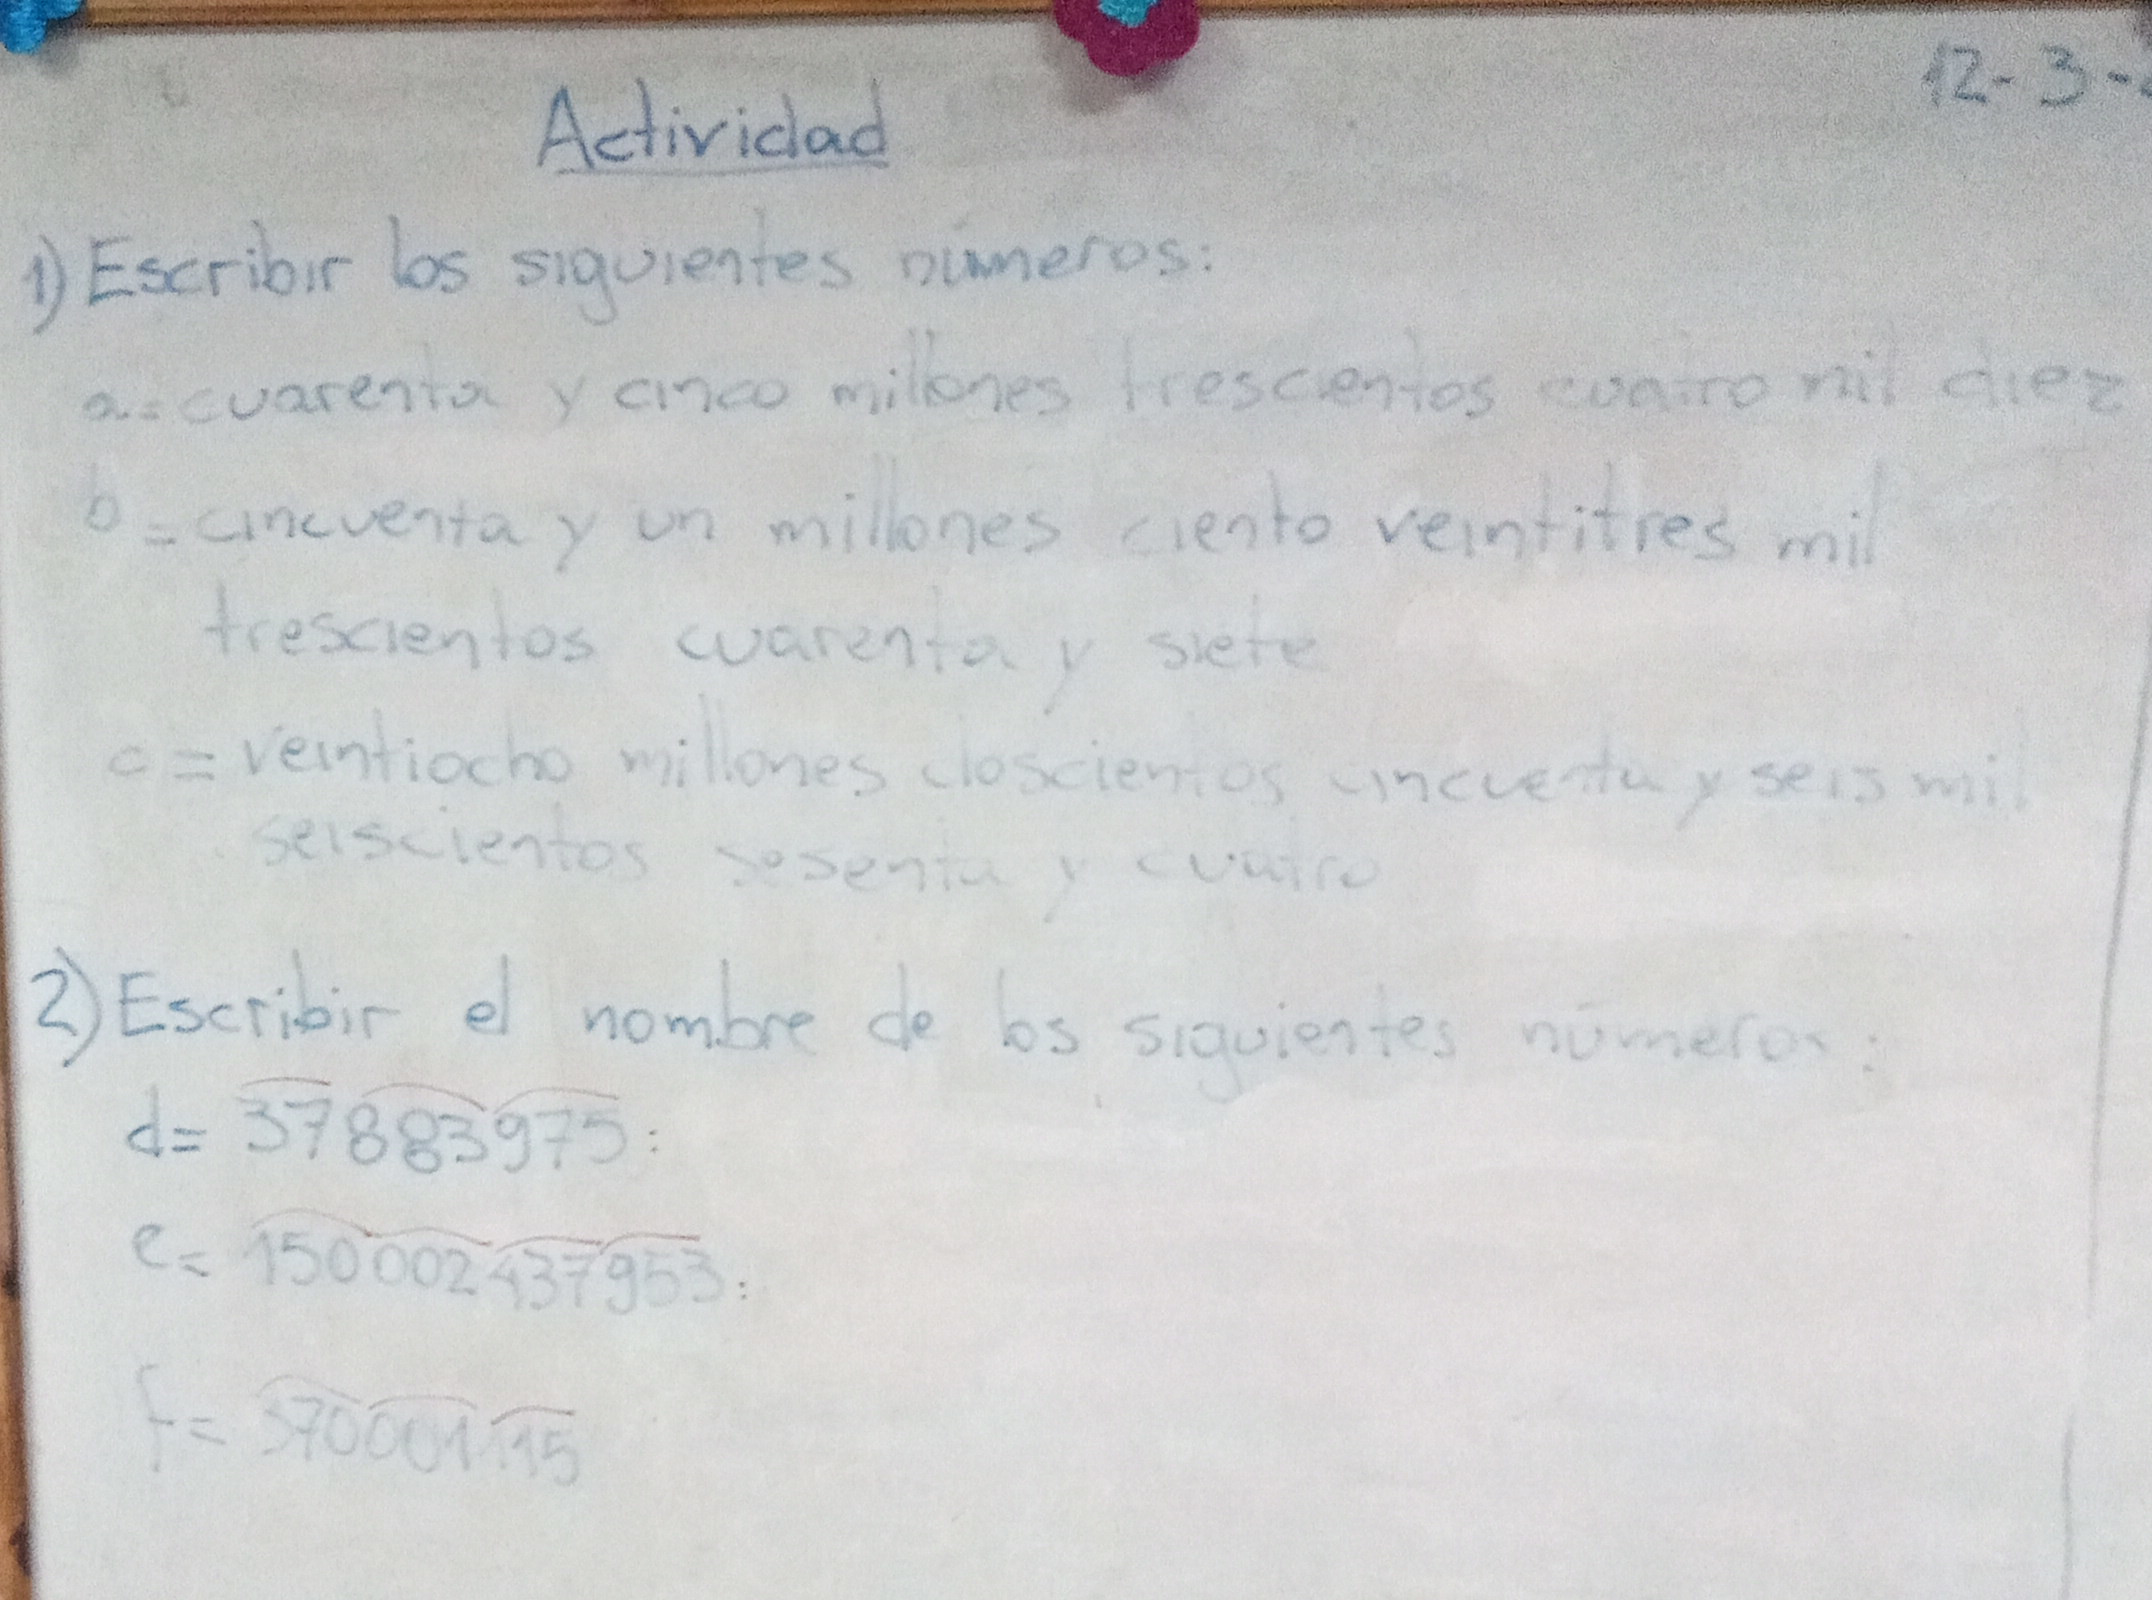 12-3-
Actividad
1) Escribir los siguientes números:
a= cuarenta y cinco millones trescientos cuatro mil diez
b= cincuenta y un millones ciento veintitres mil
trescientos cuarenta y siete
c= veintiocho millones doscientos cincuenta y seis mil
seiscientos sesenta y cuatro
2) Escribir el nombre de los siguientes números:
d= 37883975:
e= 150002437953:
f= 370001115